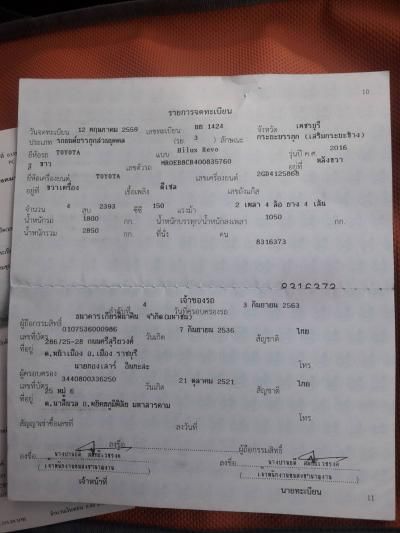 10
รายการจดทะเบียน
วันจดทะเบียน 12 พฤษภาคม 2559 เลขทะเบียน บบ 1424 จังหวัด เพชรบุรี
ประเภท รถยนต์บรรทุกส่วนบุคคล (รย. 3 ) ลักษณะ กระบะบรรทุก (เสริมกระบะข้าง)
ยี่ห้อรถ TOYOTA แบบ Hilux Revo รุ่นปี ค.ศ. 2016
สี ขาว เลขตัวรถ MR0EB8CB400835760 อยู่ที่ หลังขวา
ยี่ห้อเครื่องยนต์ TOYOTA เลขเครื่องยนต์ 2GD4125868
อยู่ที่ ขวาเครื่อง เชื้อเพลิง ดีเซล เลขถังแก๊ส
จำนวน 4 สูบ 2393 ซีซี 150 แรงม้า 2 เพลา 4 ล้อ ยาง 4 เส้น
น้ำหนักรถ 1800 กก. น้ำหนักบรรทุก/น้ำหนักลงเพลา 1050 กก.
น้ำหนักรวม 2850 กก. ที่นั่ง คน
8316373
8316373
เจ้าของรถ
ลำดับที่ 4 วันที่ครอบครองรถ 3 กันยายน 2563
ผู้ถือกรรมสิทธิ์ ธนาคารเกียรตินาคิน จำกัด(มหาชน)
เลขที่บัตร 0107536000986 วันเกิด 7 กันยายน 2536 สัญชาติ ไทย
ที่อยู่ 286/25-28 ถนนศรีสุริยวงศ์
ต.หน้าเมือง อ.เมือง ราชบุรี โทร.
ผู้ครอบครอง
เลขที่บัตร 3440800336250 วันเกิด 21 ตุลาคม 2521 สัญชาติ ไทย
ที่อยู่ 25 หมู่ 6
อ.พยัคฆภูมิพิสัย มหาสารคาม โทร.
สัญญาเช่าซื้อเลขที่ ลงวันที่
ลงชื่อ ผู้ถือกรรมสิทธิ์
ลงชื่อ ลงชื่อ
(เจ้าพนักงานขนส่งชำนาญงาน) (เจ้าพนักงานขนส่งชำนาญงาน)
เจ้าหน้าที่ นายทะเบียน
11